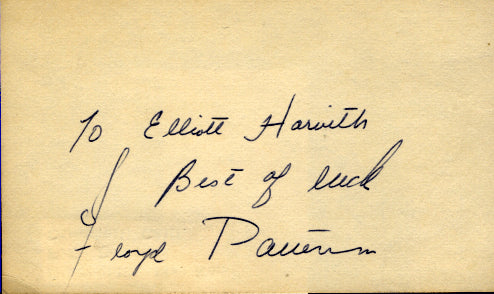 To Elliott Harvith
Best of luck
Floyd Patterson